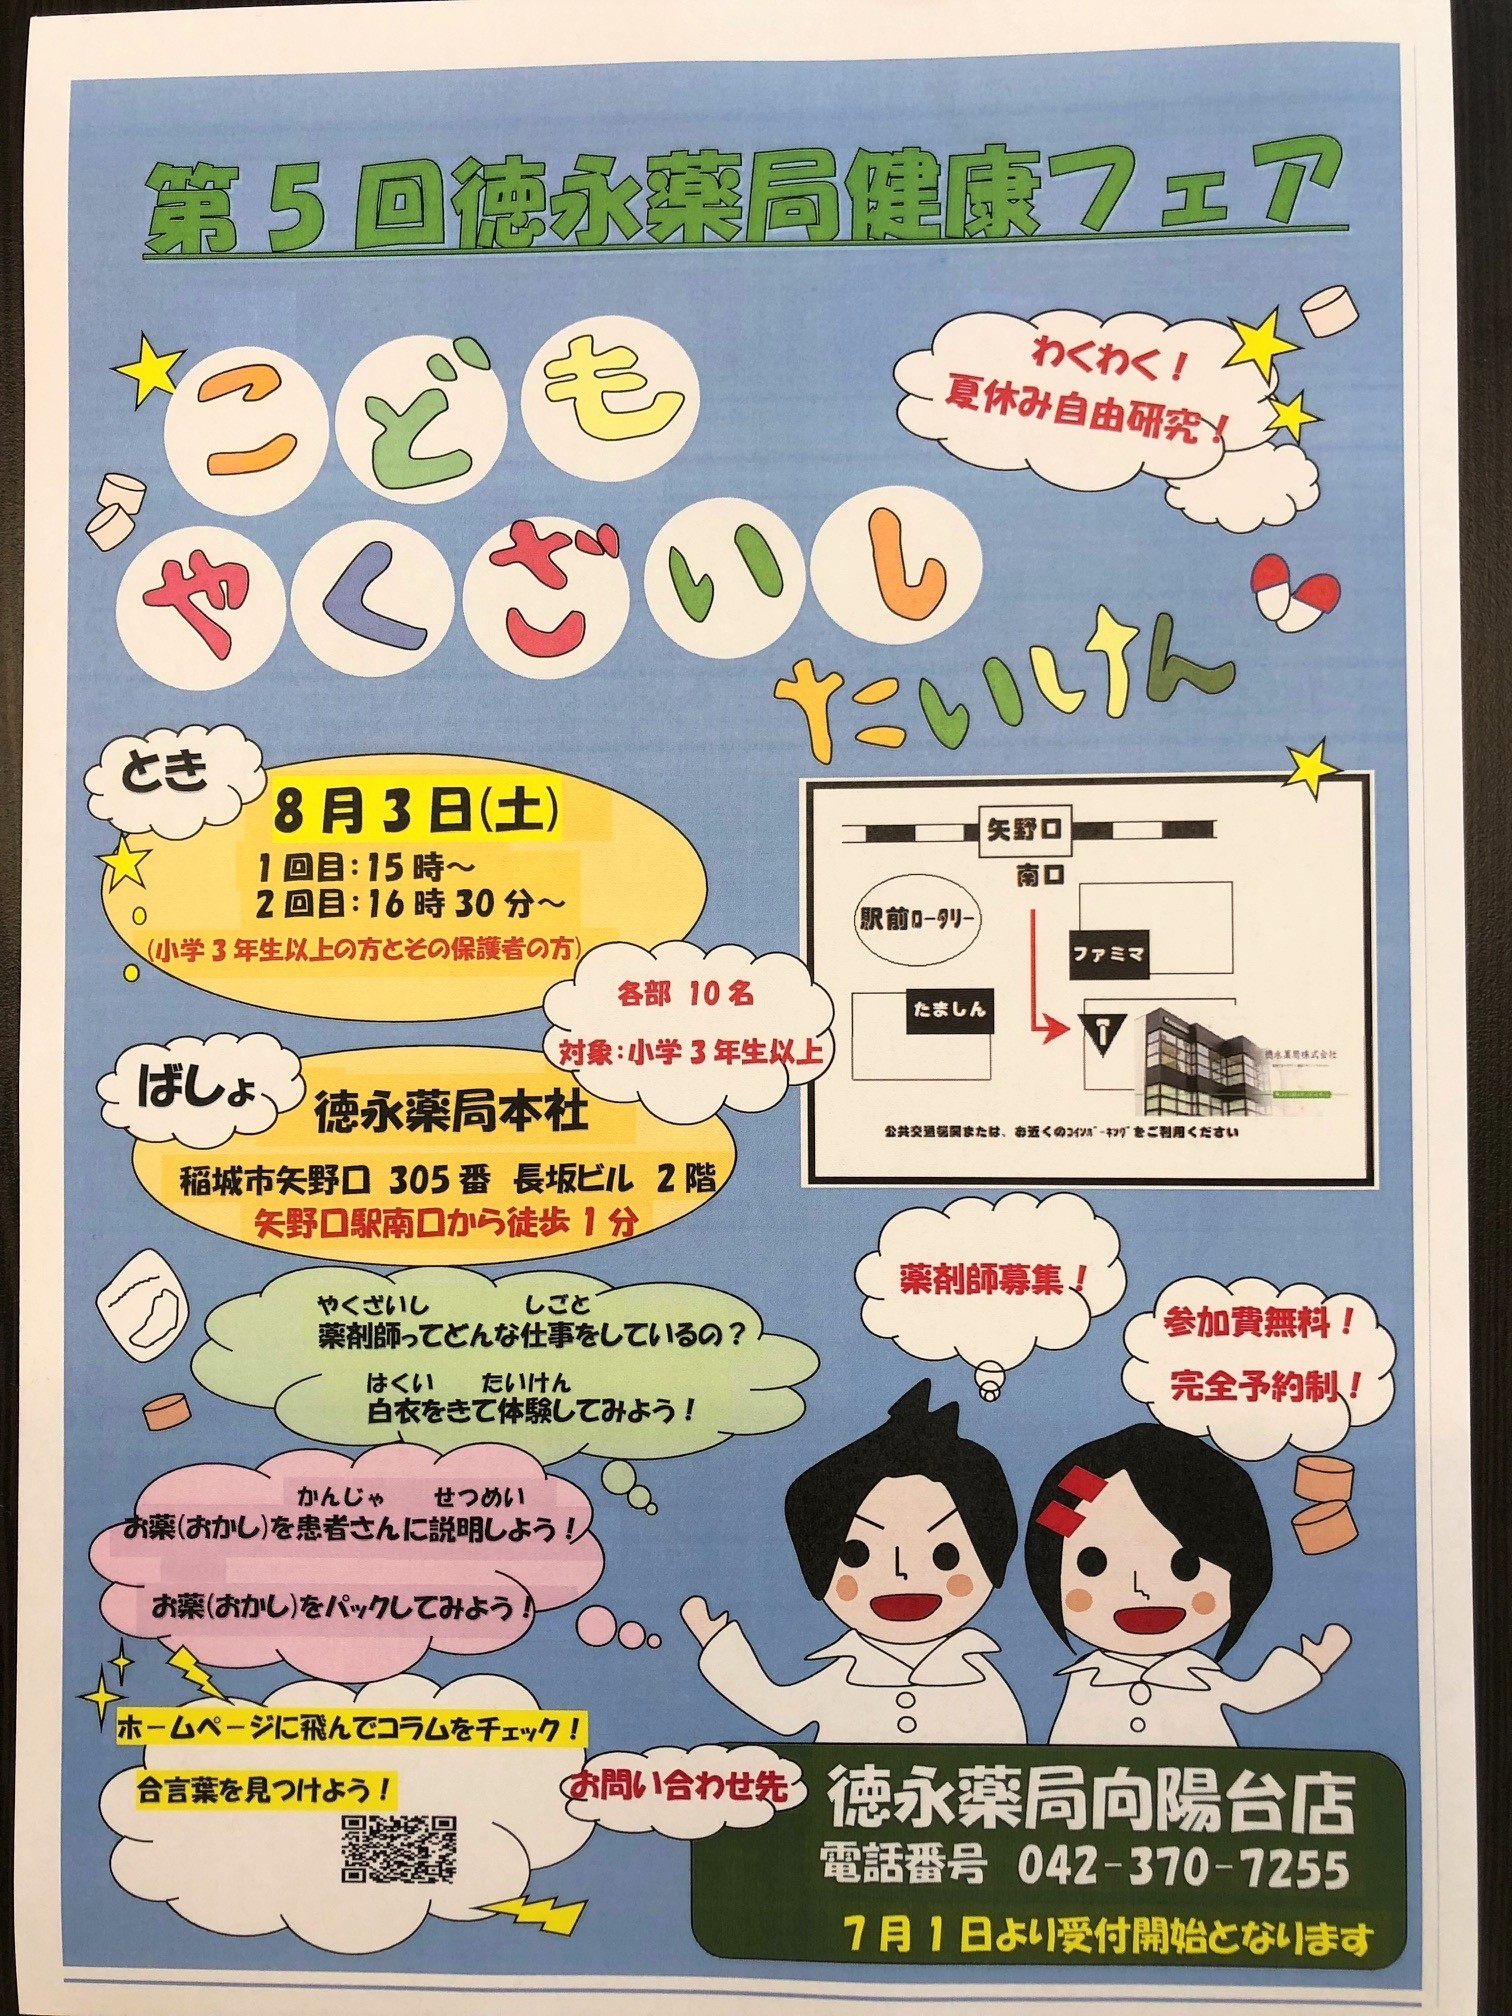 第5回徳永薬局健康フェア
わくわく！
夏休み自由研究！
こども
やくざいし
たいけん
とき
8月3日(土)
1回目：15時～
2回目：16時30分～
(小学3年生以上の方とその保護者の方)
各部 10名
対象：小学3年生以上
ばしょ
徳永薬局本社
稲城市矢野口 305番 長坂ビル 2階
矢野口駅南口から徒歩1分
矢野口
南口
駅前ロータリー
ファミマ
たましん
徳永薬局株式会社
公共交通機関または、お近くのｺｲﾝﾊﾟｰｷﾝｸﾞをご利用ください
やくざいし しごと
薬剤師ってどんな仕事をしているの？
はくい たいけん
白衣をきて体験してみよう！
薬剤師募集！
参加費無料！
完全予約制！
かんじゃ せつめい
お薬(おかし)を患者さんに説明しよう！
お薬(おかし)をパックしてみよう！
ホームページに飛んでコラムをチェック！
合言葉を見つけよう！
お問い合わせ先
徳永薬局向陽台店
電話番号 042-370-7255
7月1日より受付開始となります